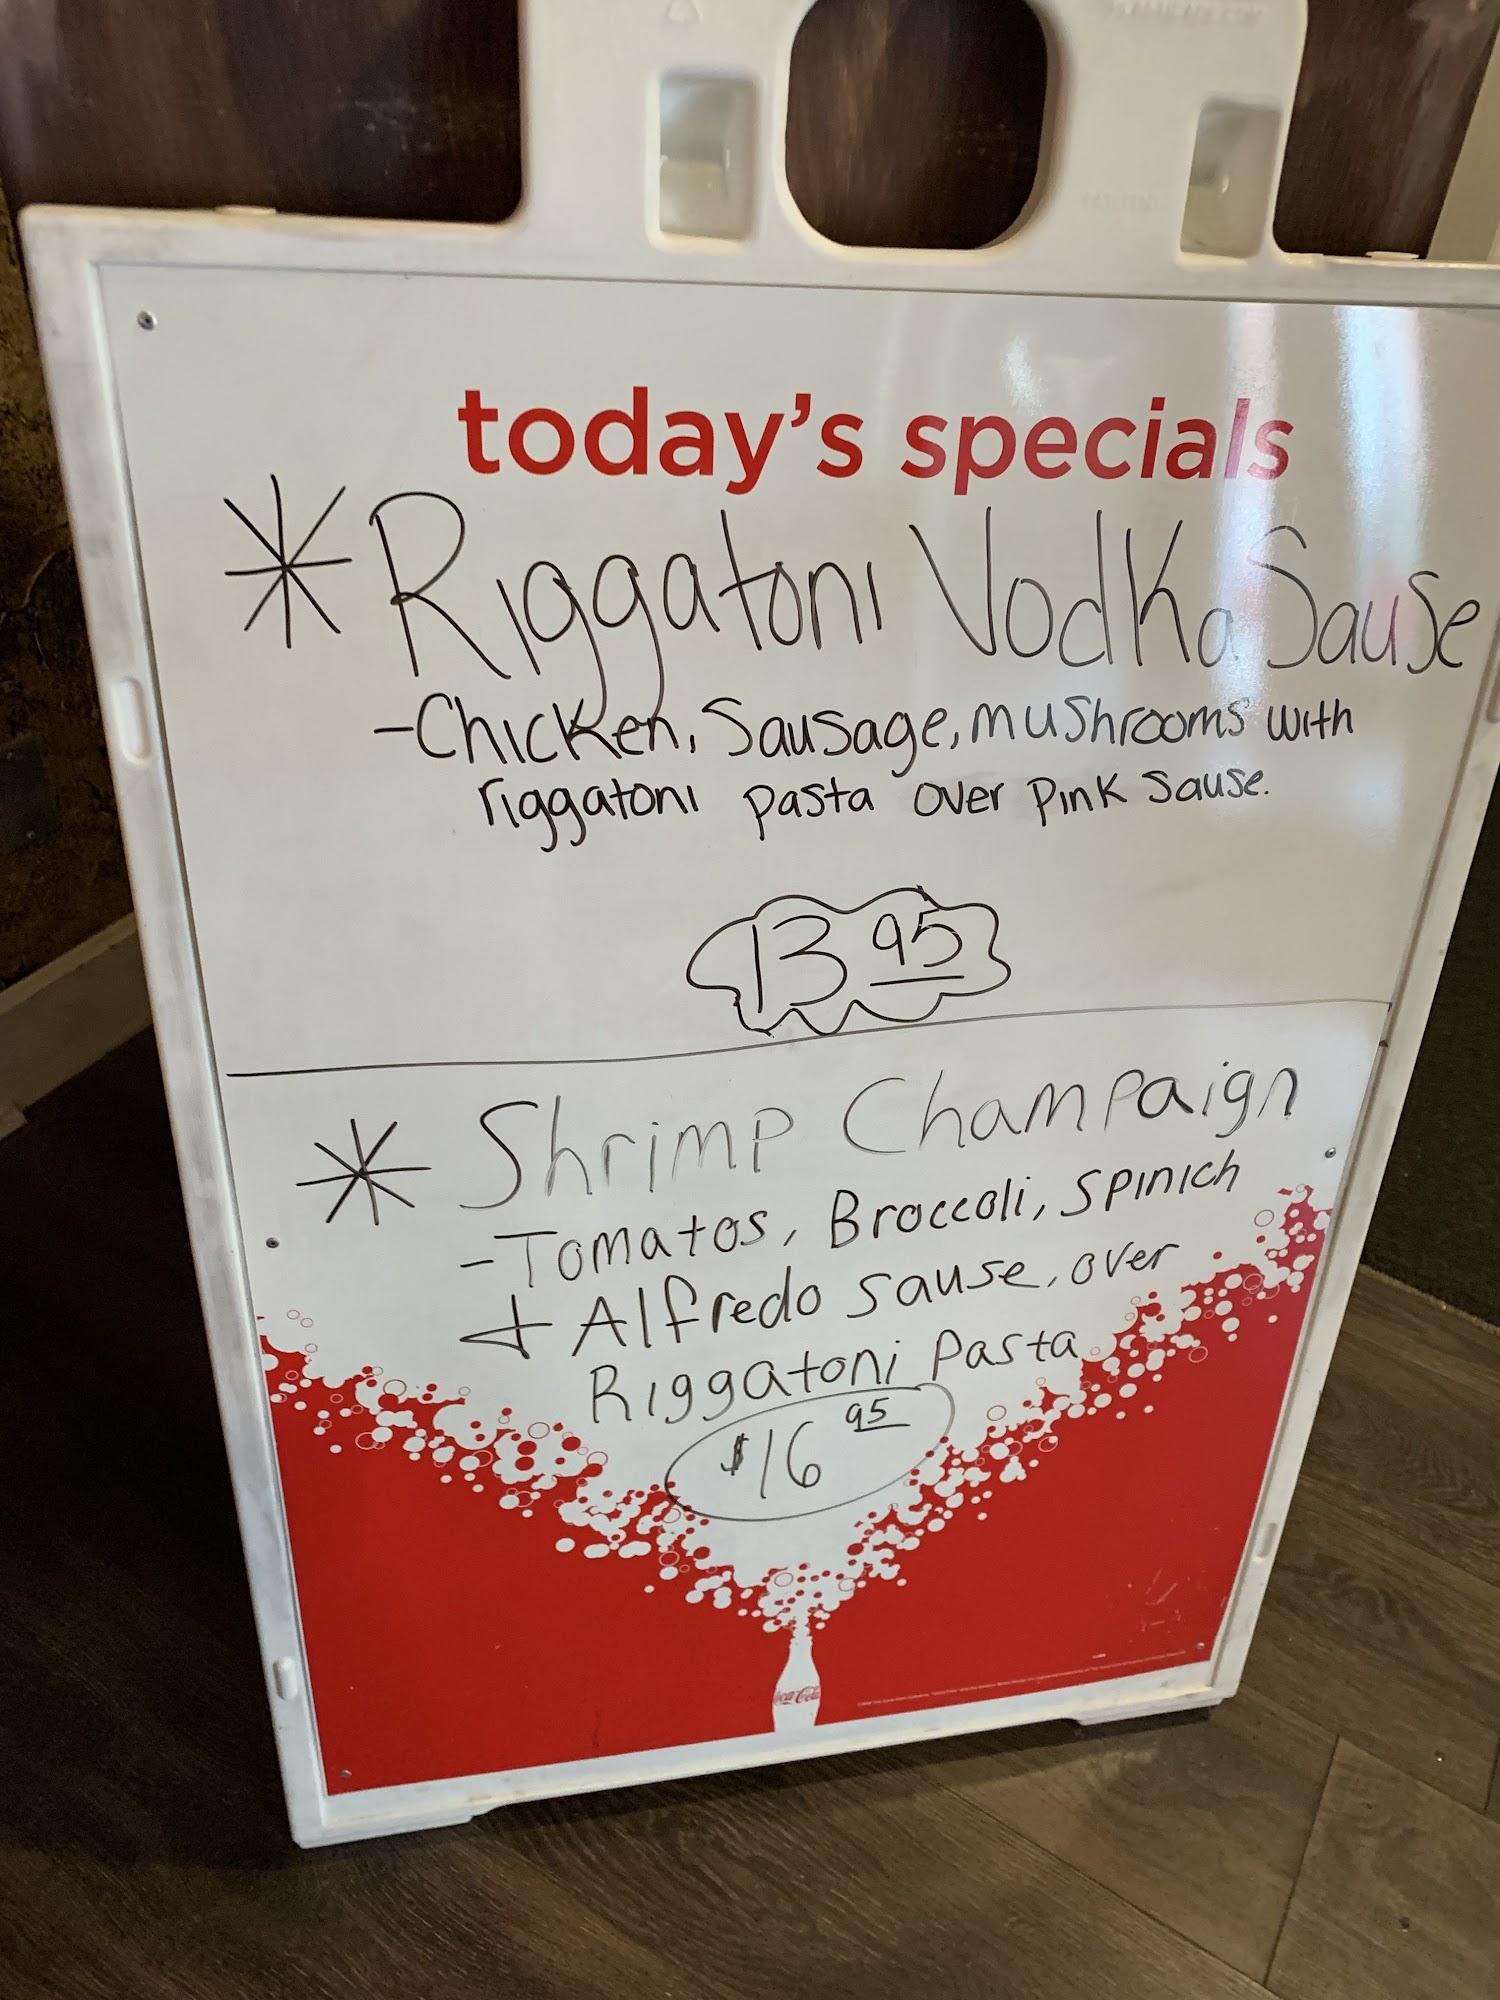 today's specials
* Riggatoni Vodka Sause
- Chicken, Sausage, mushrooms with
riggatoni pasta over pink sause.
13 95
* Shrimp Champaign
- Tomatos, Broccoli, Spinich
+ Alfredo sause, over
Riggatoni Pasta
$16 95
Coca-Cola